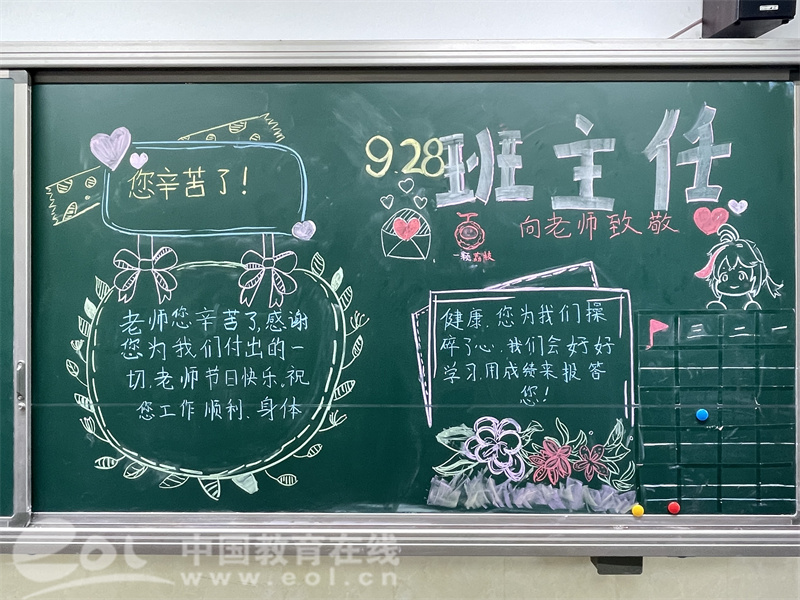 您辛苦了！
老师您辛苦了，感谢
您为我们付出的一
切，老师节日快乐，祝
您工作顺利、身体
9.28班主任
向老师致敬
健康，您为我们操
碎了心，我们会好好
学习，用成绩来报答
您！
三 二 一
eol 中国教育在线
www.eol.cn